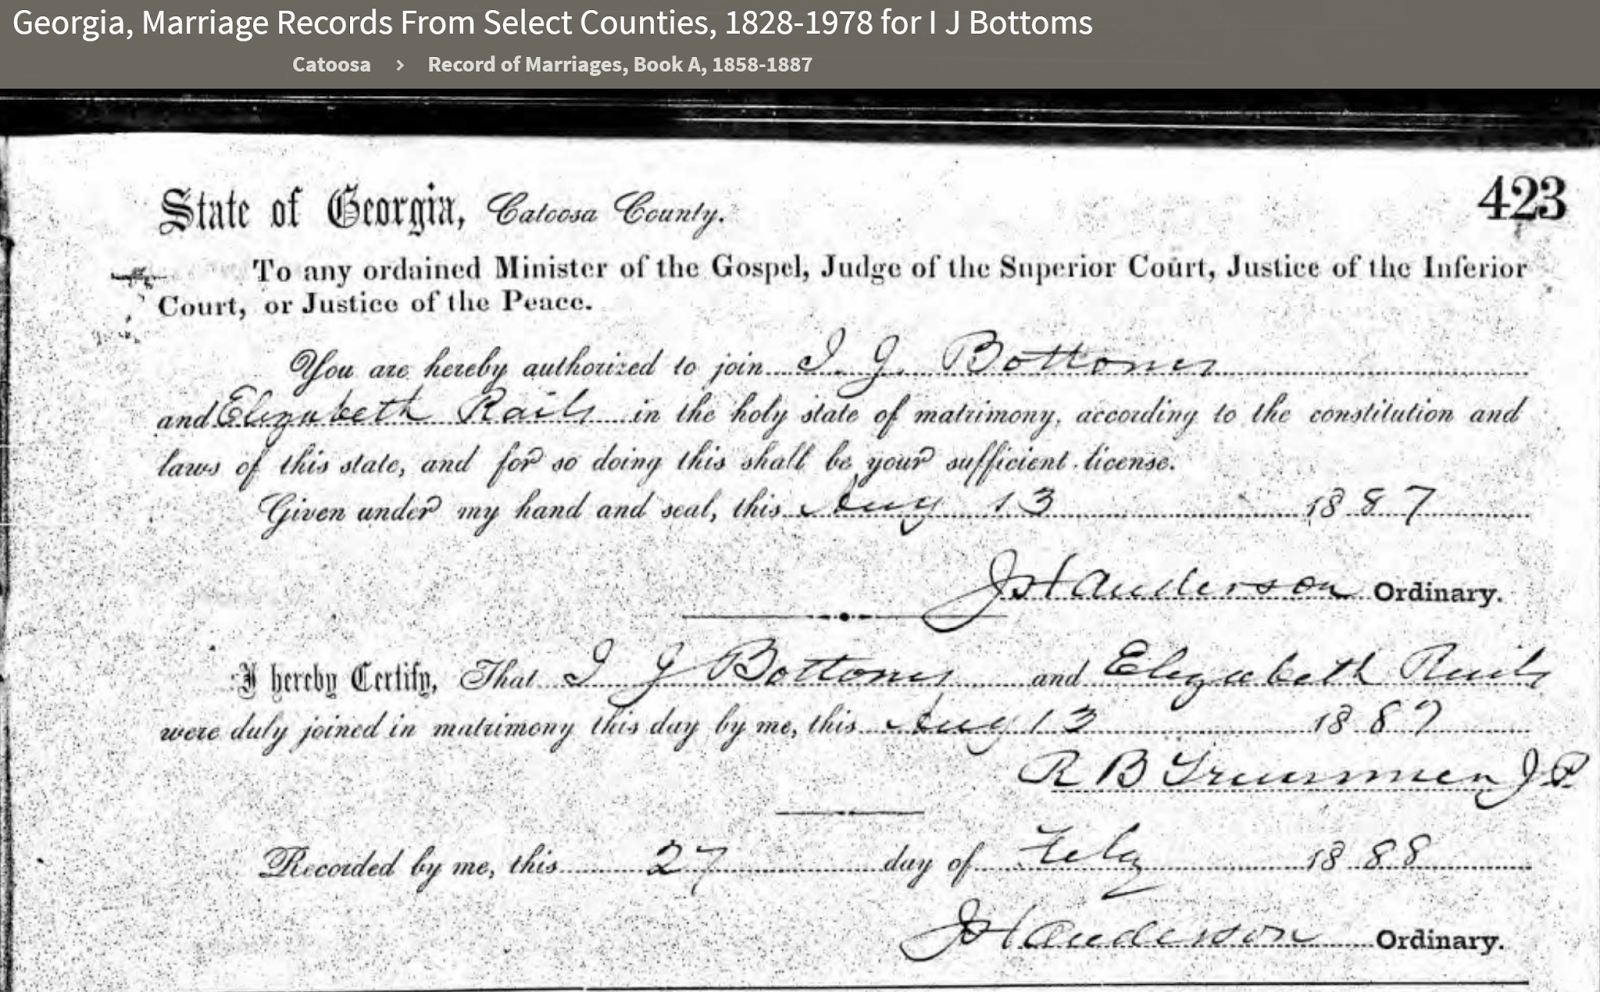 Georgia, Marriage Records From Select Counties, 1828-1978 for I J Bottoms
Catoosa > Record of Marriages, Book A, 1858-1887
423
State of Georgia, Catoosa County.
To any ordained Minister of the Gospel, Judge of the Superior Court, Justice of the Inferior
Court, or Justice of the Peace.
You are hereby authorized to join I. J. Bottoms
and Elizabeth Rails in the holy state of matrimony, according to the constitution and
laws of this state, and for so doing this shall be your sufficient license.
Given under my hand and seal, this Aug 13 1887
J H Anderson Ordinary.
I hereby Certify, That I J Bottoms and Elizabeth Rails
were duly joined in matrimony this day by me, this Aug 13 1887
R B J P.
Recorded by me, this 27 day of Feby 1888
J H Anderson Ordinary.